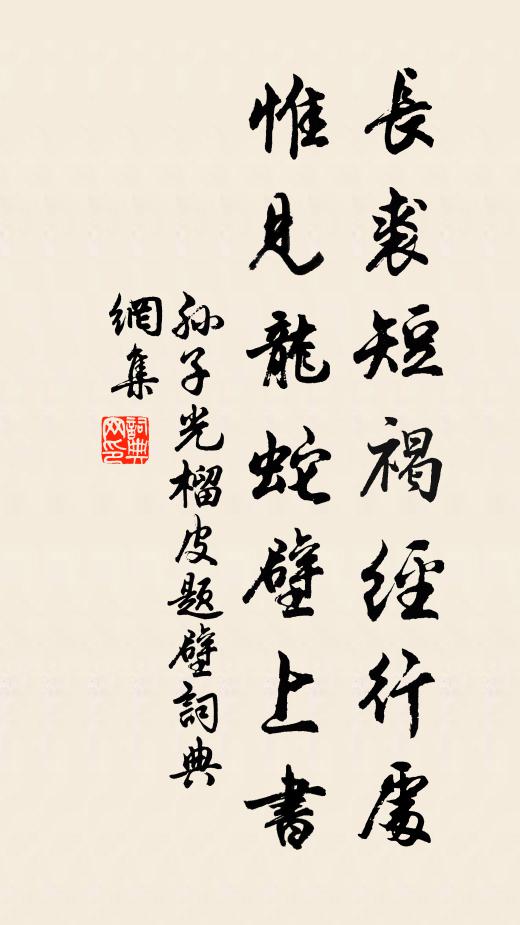 長裘短褐經行處
惟見龍蛇壁上書
孫子光榴皮題壁詞典
網集
詞典
网印